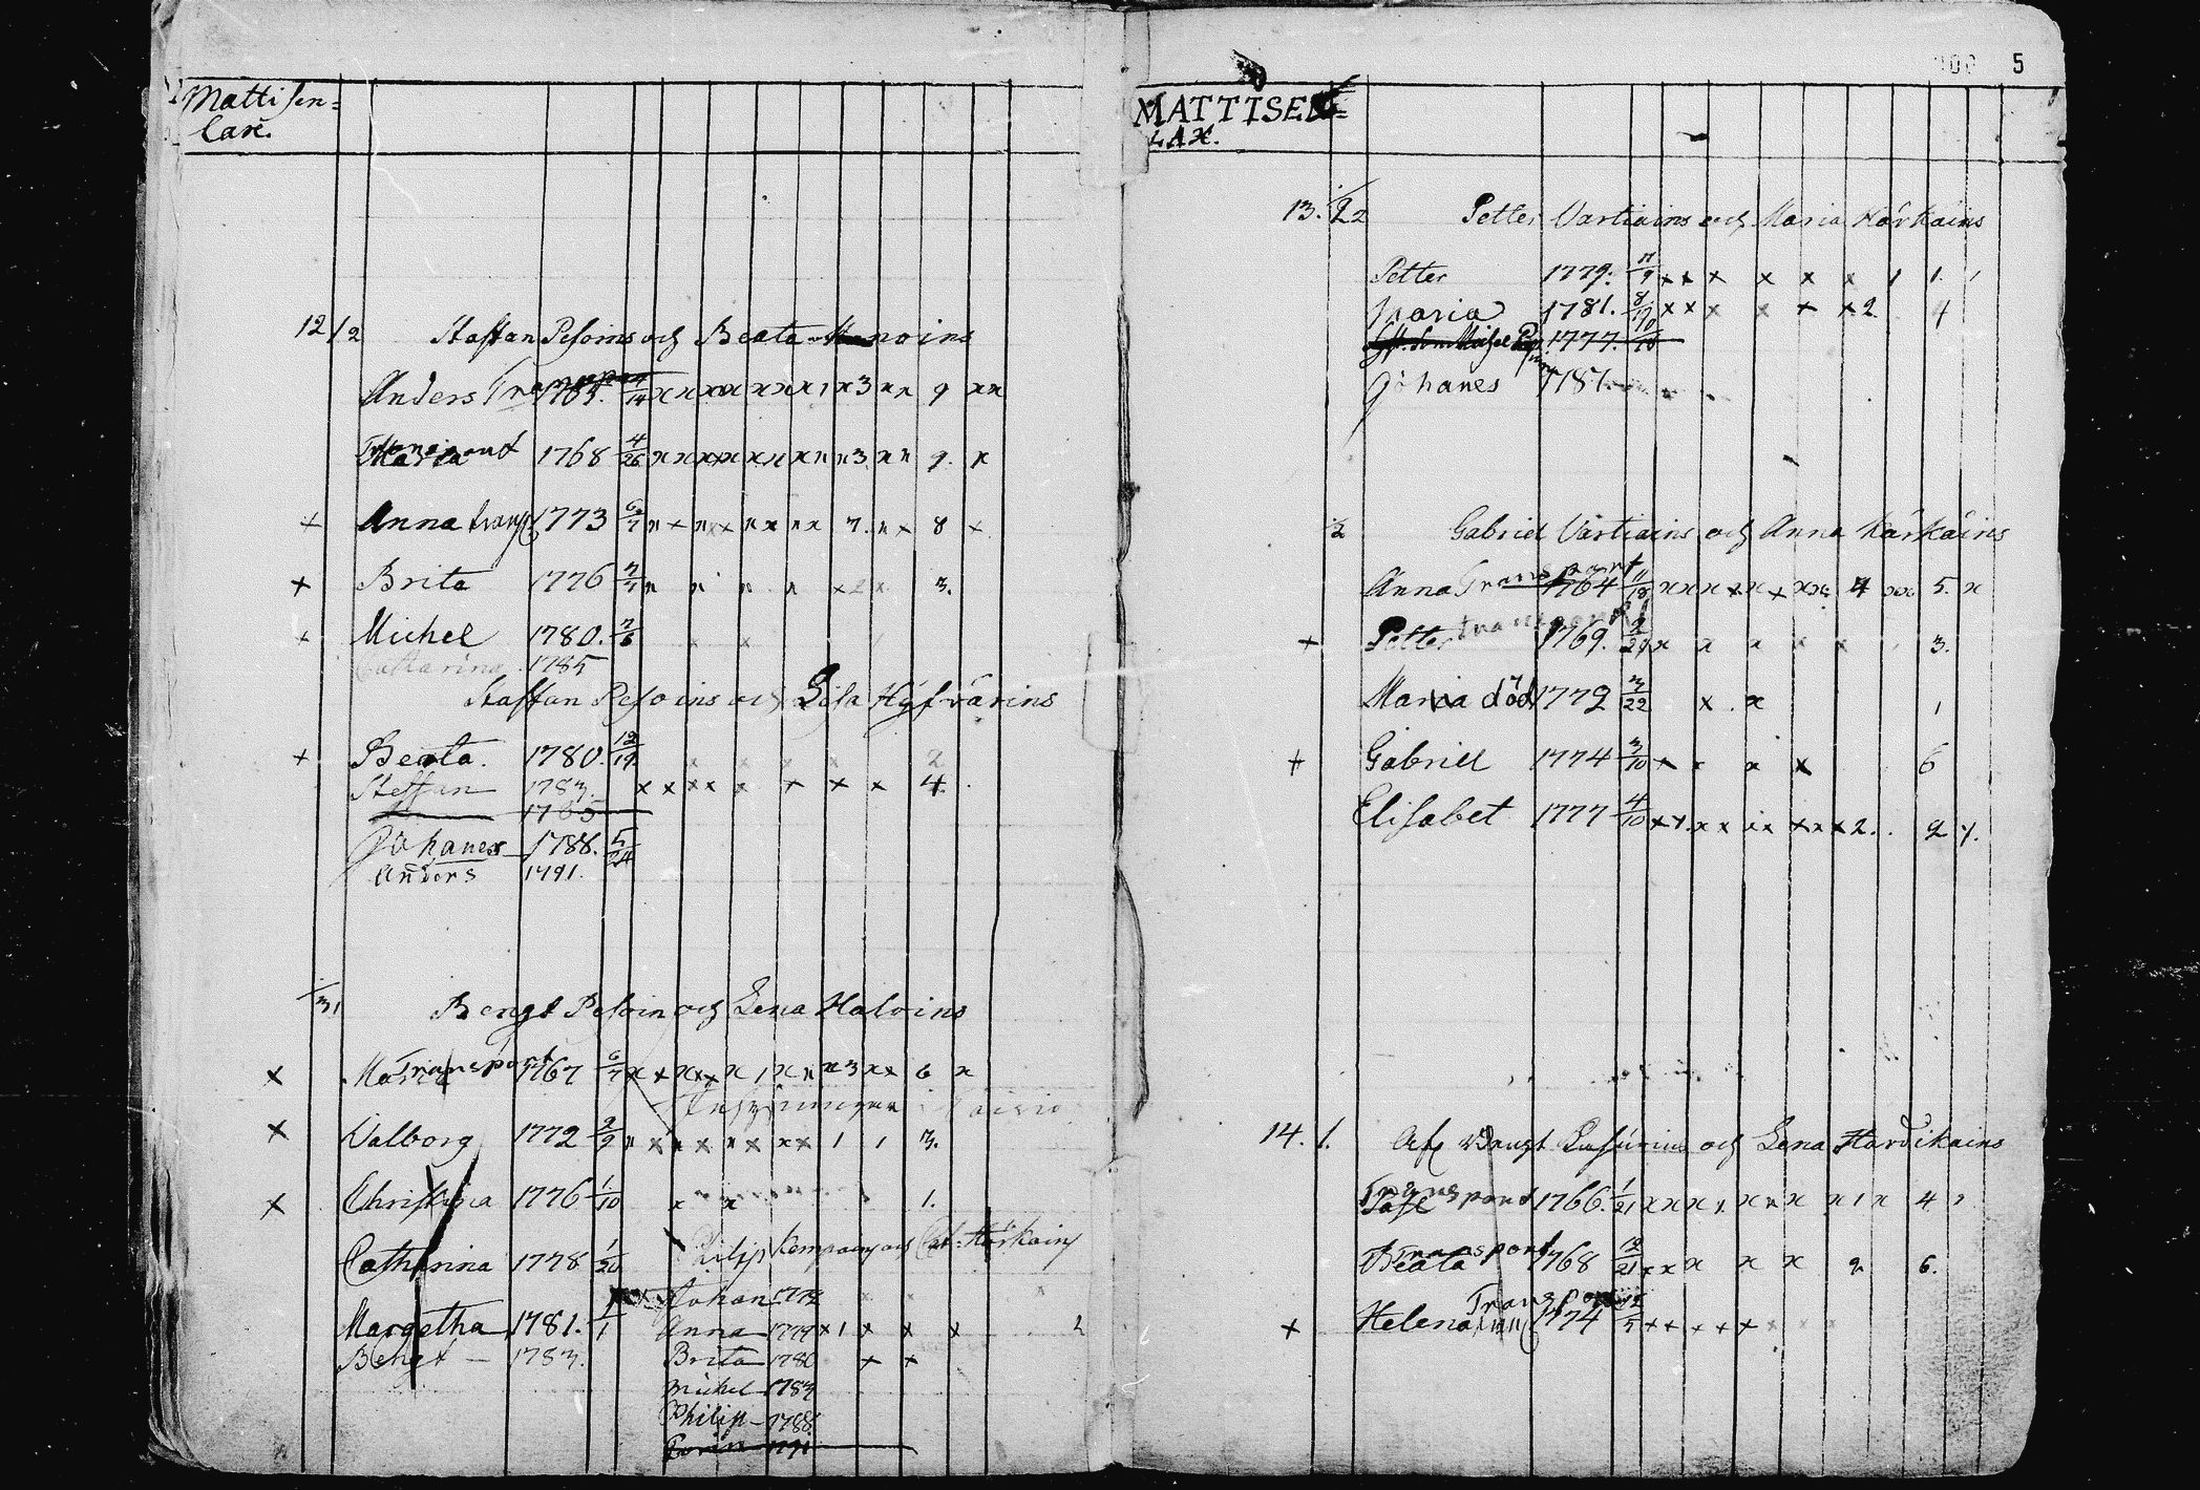 Mattisen=
lax.
12 1/2 Staffan Pesoins och Beata
Anders Transport 1765. 4/14 x x x x x x x x 1 x 3 x x 9 x x
Transport Maria 1768 4/26 x x x x x x x x x x 3 x x 9. x
+ Anna transp 1773 6/7 x + x x x x x x x 7. x x 8 x
+ Brita 1776 7/7 x x x x x 2 x 3.
+ Michel 1780. 7/6 x x
Catharina 1785
Staffan Pesoins och Lisa Hyfvärins
+ Beata. 1780. 12/19 x x x x x 2
Steffan 1783. x x x x x x x x 4.
1785
Johanes 1788. 5/24
Anders 1791.
3 1 Bengt Pesoin och Lena Haloins
x Maria Transport 1767 6/7 x x x x x 1 x x x 3 x x 6 x
x Valborg 1772 2/9 x x x x x x x x 1 1 3.
x Christina 1776 1/10 x x 1.
Catharina 1778 1/20
Margetha 1781. 1/1
Bengt – 1783.
Philip Kempainen och Cat. Härkäins
Johan 1772
Anna 1777 x 1 x x x 2
Brita 1780 x x
Michel 1783
Philip – 1788
1791
5
MATTISEN=
LAX.
13. 2 Petter Vartiains och Maria Kärkäins
Petter 1779. 11/9 x x x x x x 1 1. 1
Maria 1781. 8/19 x x x x x x 2 4
1777. 10/18
Johanes 1787.
2 Gabriel Vartiains och Anna Kärkäins
Anna Transport 1764 11/18 x x x x x x x x 4 x x 5. x
+ Petter transport 1769. 2/29 x x x x x 3.
Maria död 1772 3/22 x x 1
+ Gabriel 1774 3/10 x x x x 6
Elisabet 1777 4/10 x x x x x x x x x 2. 9 x.
14. 1. Afl. Bengt och Lena Hardikains
Transport 1766. 1/21 x x x x x x x x 1 x 4
Beata Transport 1768 12/21 x x x x x 2 6.
+ Helena Transport 1774 12/5 x x x x x